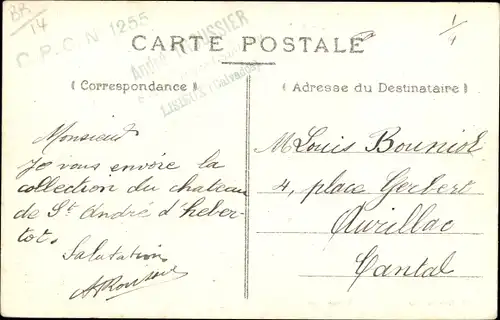 BR
14
C.P.C.N 1255
1/1
CARTE POSTALE
André
LISIEUX (Calvados)
(Correspondance)
(Adresse du Destinataire)
Monsieur
Je vous envoie la
collection du chateau
de St André d'heber-
tot.
Salutation
M Louis Bouniol
4, place Gerbert
Aurillac
Cantal